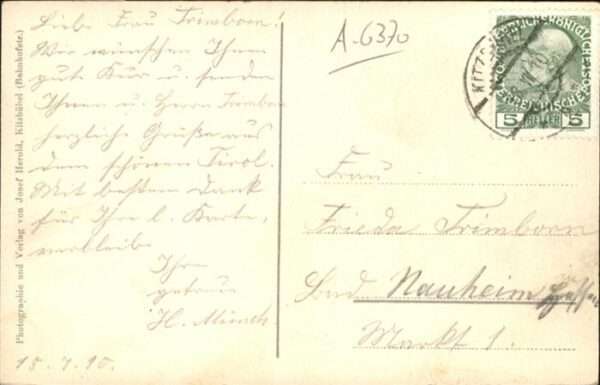 Liebe Frau Trimborn!
Wir wünschen Ihnen
gute Kur u. senden
Ihnen u. Herrn Trimborn
herzliche Grüße aus
dem schönen Tirol.
Mit bestem Dank
für Ihre l. Karte,
verbleibe
Ihre
getreue
H. Münch
15.7.10.
Photographie und Verlag von Josef Herold, Kitzbühel (Bahnhofstr.)
A-6370
5 HELLER 5
KITZB
Frau
Frieda Trimborn
Bad Nauheim
Markt 1.